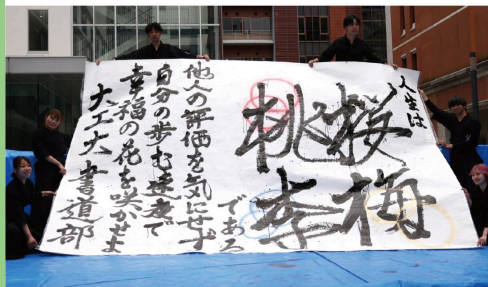 人生は
桜梅
桃李
である
他人の評価を気にせず
自分の歩む速度で
幸福の花を咲かせよ
大工大 書道部